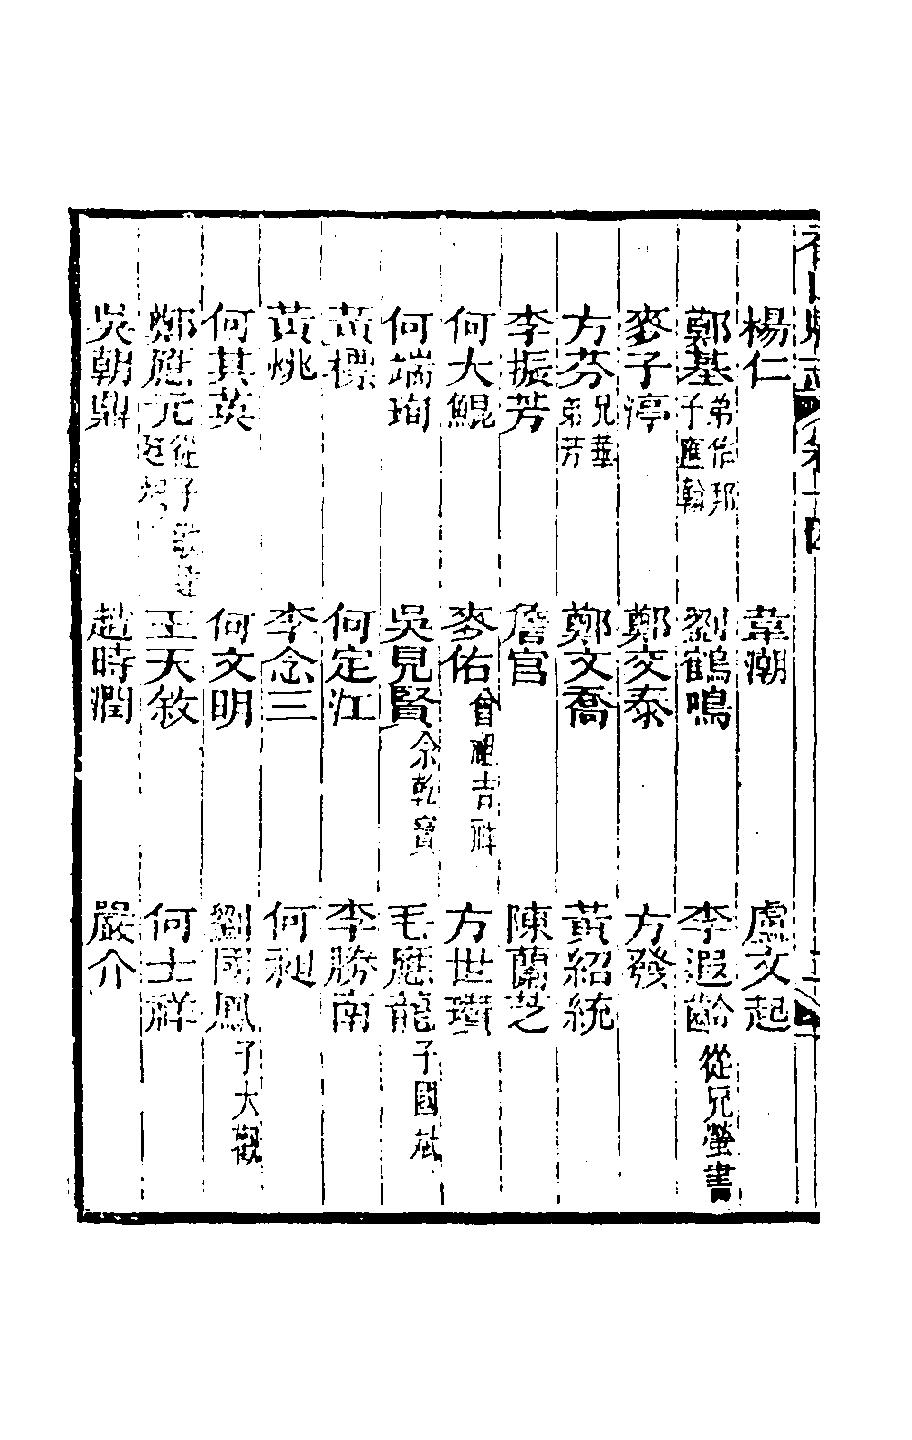 楊仁　韋潮　盧文起
鄭基弟作邦子應翰　劉鶴鳴　李遐齡從兄瑩書
麥子渟　鄭交泰　方發
方芬兄華弟芳　鄭文喬　黃紹統
李振芳　詹官　陳蘭芝
何大鯤　麥佑曾祖吉祥　方世
何端珣　吳見賢余乾寶　毛應龍子國斌
黃標　何定江　李勝南
黃姚　李念三　何昶
何其英　何文明　劉國鳳子大觀
鄭應元從子　王天敘　何士祥
吳朝鼎　趙時潤　嚴介